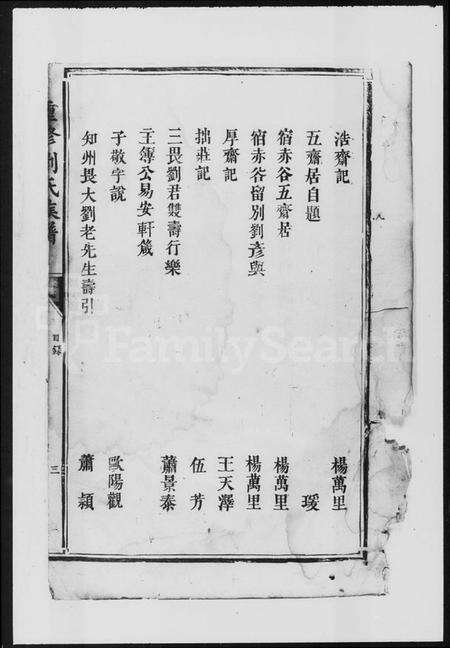 浩齋記 楊萬里
五齋居自題 瑗
宿赤谷五齋居 楊萬里
宿赤谷留別劉彥與 楊萬里
厚齋記 王天澤
拙莊記 伍芳
三畏劉君雙壽行樂 蕭景泰
主簿公易安軒箴
子敬字說 歐陽觀
知州畏大劉老先生壽引 蕭穎
重修劉氏族譜
目錄
三
FamilySearch